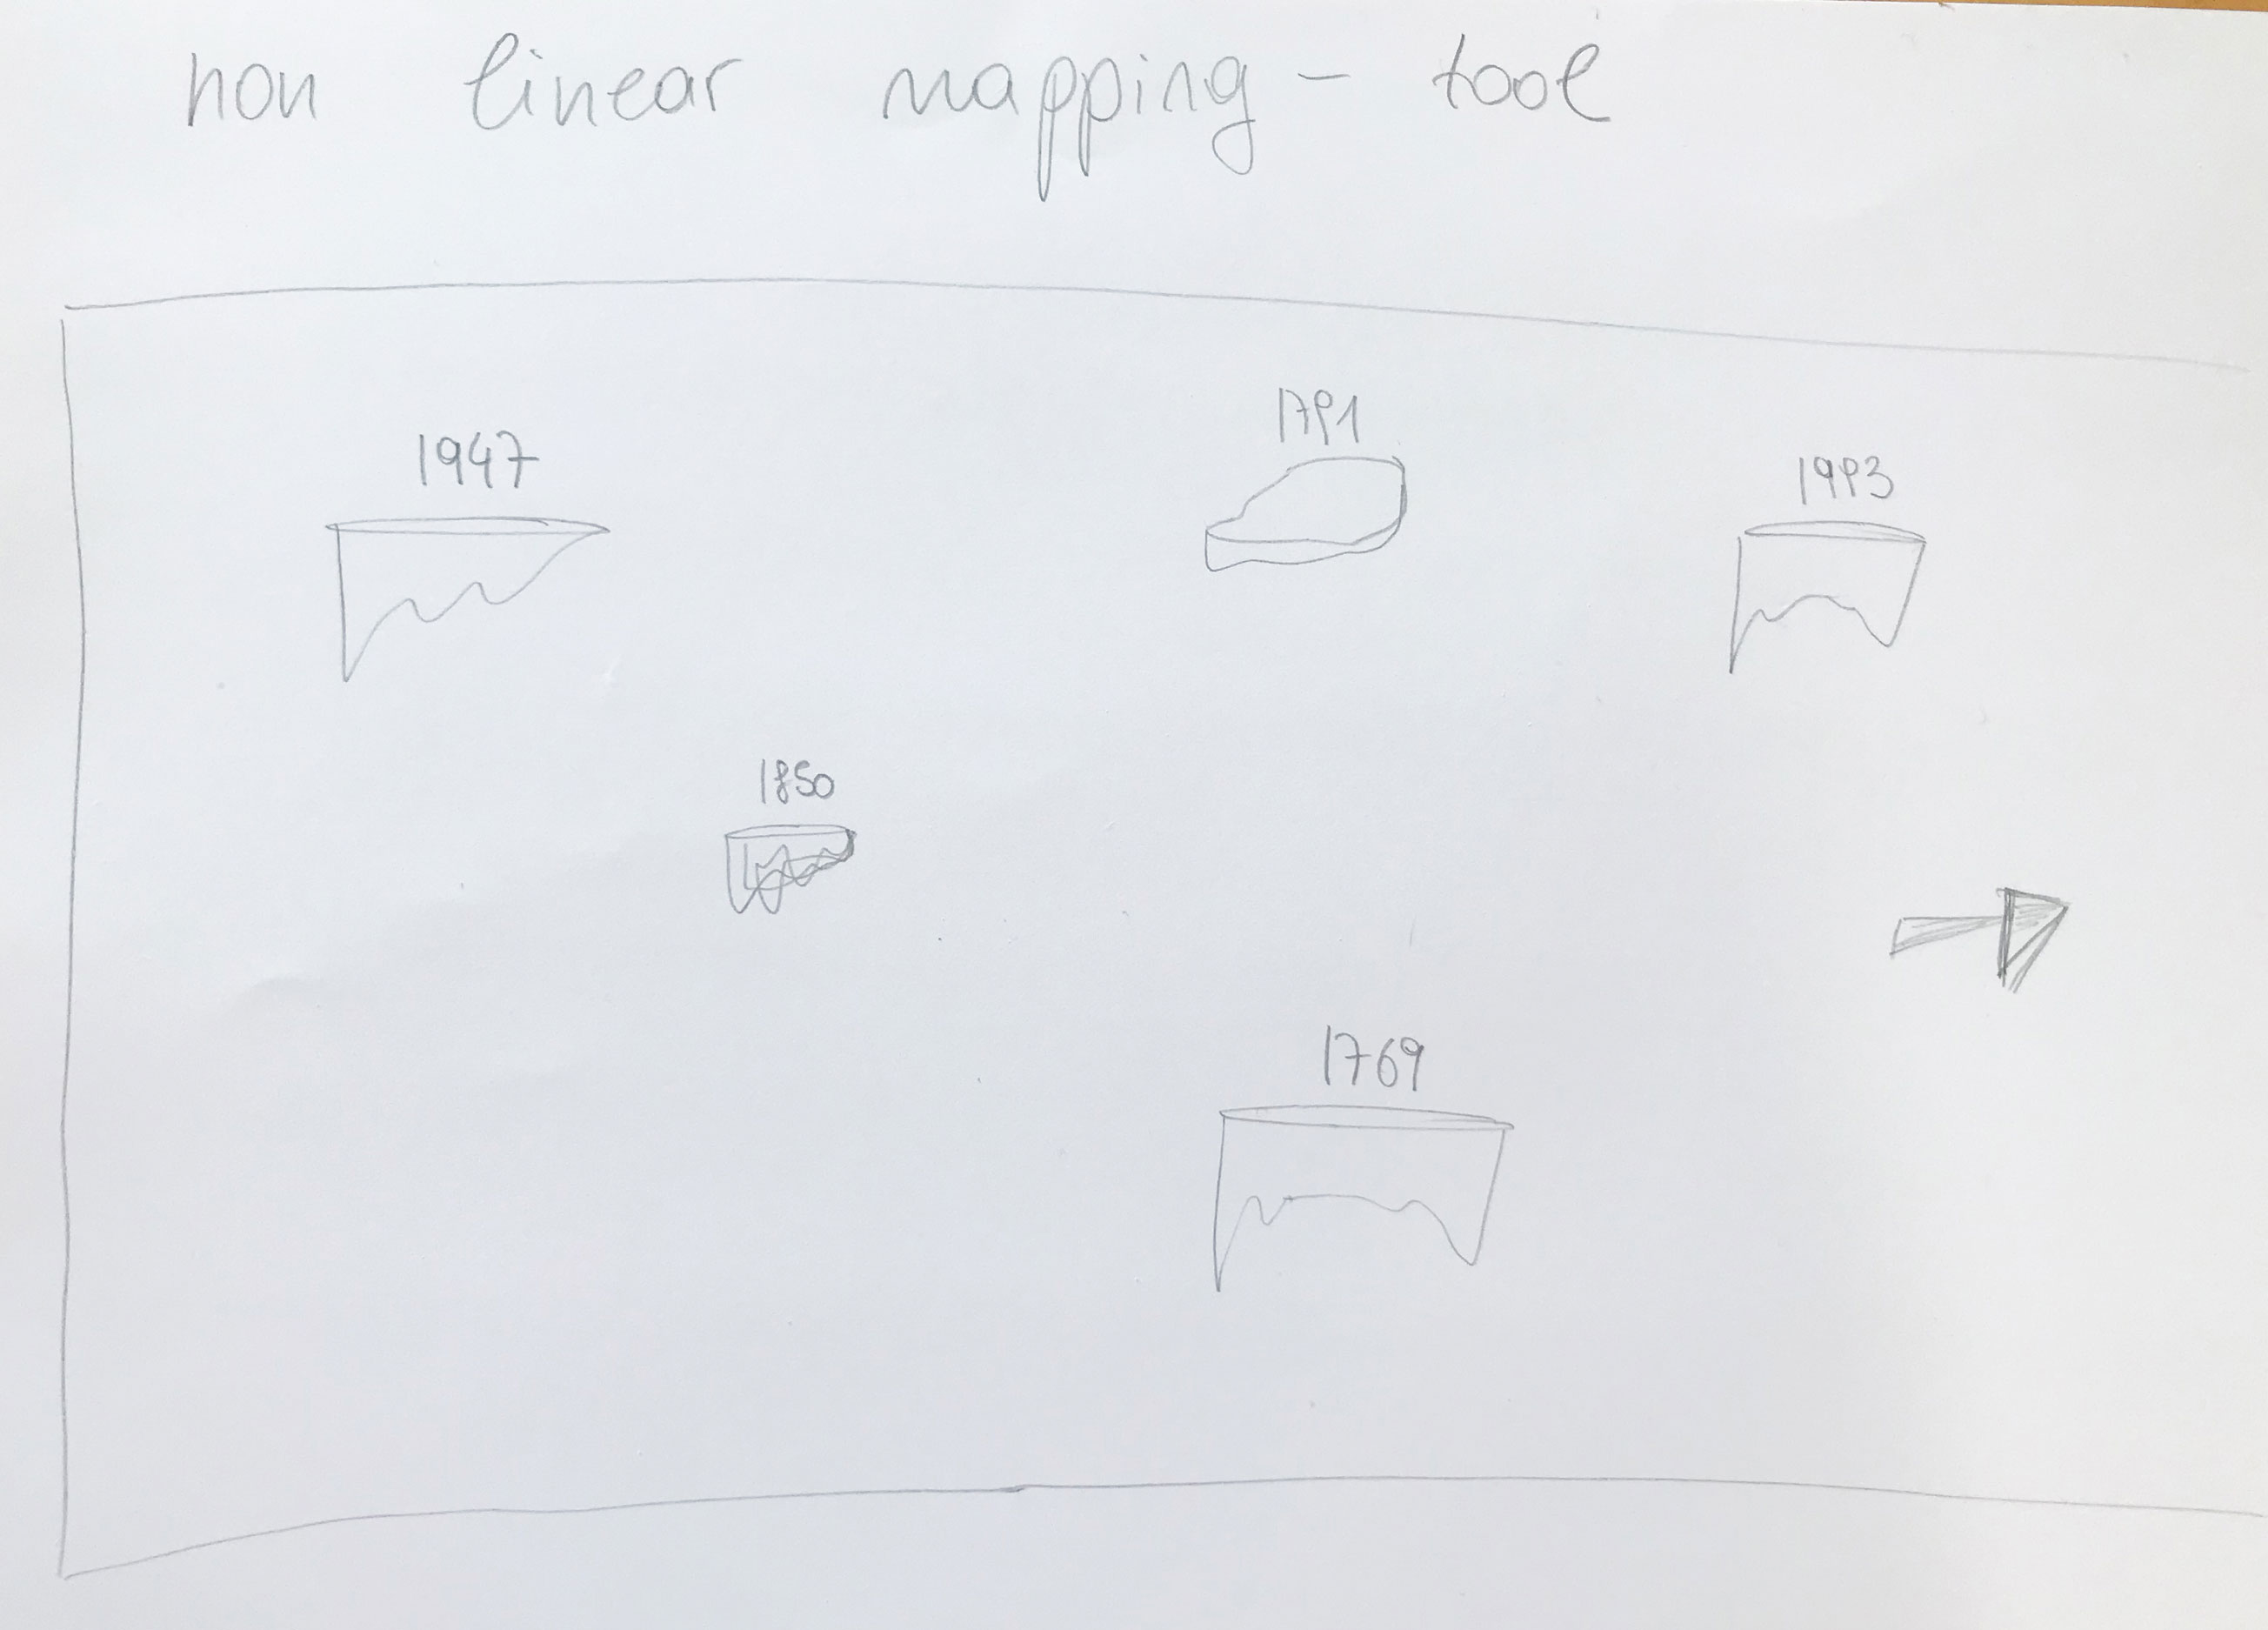 non linear mapping - tool
1947
1791
1993
1850
1769